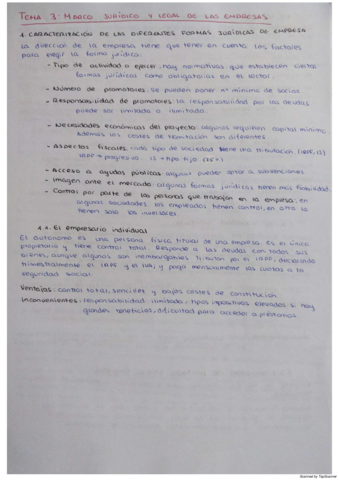 TEMA 3: MARCO JURÍDICO Y LEGAL DE LAS EMPRESAS.
1. CARACTERIZACIÓN DE LAS DIFERENTES FORMAS JURÍDICAS DE EMPRESA
La dirección de la empresa tiene que tener en cuenta los factores
para elegir la forma jurídica:
- Tipo de actividad a ejercer, hay normativas que establecen ciertas
formas jurídicas como obligatorias en el sector
- Número de promotores: se pueden poner nº mínimo de socios
- Responsabilidad de promotores: la responsabilidad por las deudas
puede ser limitada o ilimitada.
- Necesidades económicas del proyecto: algunas requieren capital mínimo
Además los costes de tramitación son diferentes
- Aspectos fiscales: cada tipo de sociedad tiene una tributación (IRPF, IS)
IRPF → progresivo IS → tipo fijo
- Acceso a ayudas públicas: algunas pueden optar a subvenciones
- Imagen ante el mercado: algunas formas jurídicas tienen más fiabilidad
- Control por parte de las personas que trabajan en la empresa: en
algunas sociedades los empleados tienen control, en otra lo
tienen solo los inversores.
1.1. El empresario individual
El autónomo es una persona física, titular de una empresa. Es el único
propietario y tiene control total. Responde a las deudas con todos sus
bienes, aunque algunos son inembargables. Tributan por el IRPF, declarando
trimestralmente el IRPF y el IVA; y paga mensualmente las cuotas a la
seguridad social.
Ventajas: control total, sencillez y bajos costes de constitución
Inconvenientes: responsabilidad ilimitada, tipos impositivos elevados si hay
grandes beneficios, dificultad para acceder a préstamos.
Scanned by TapScanner